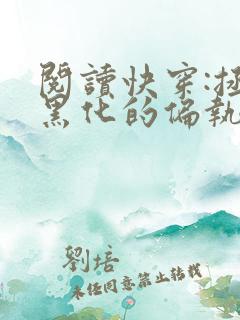 閱讀快穿:拯
黑化的偏執
劉培
未經同意禁止轉載